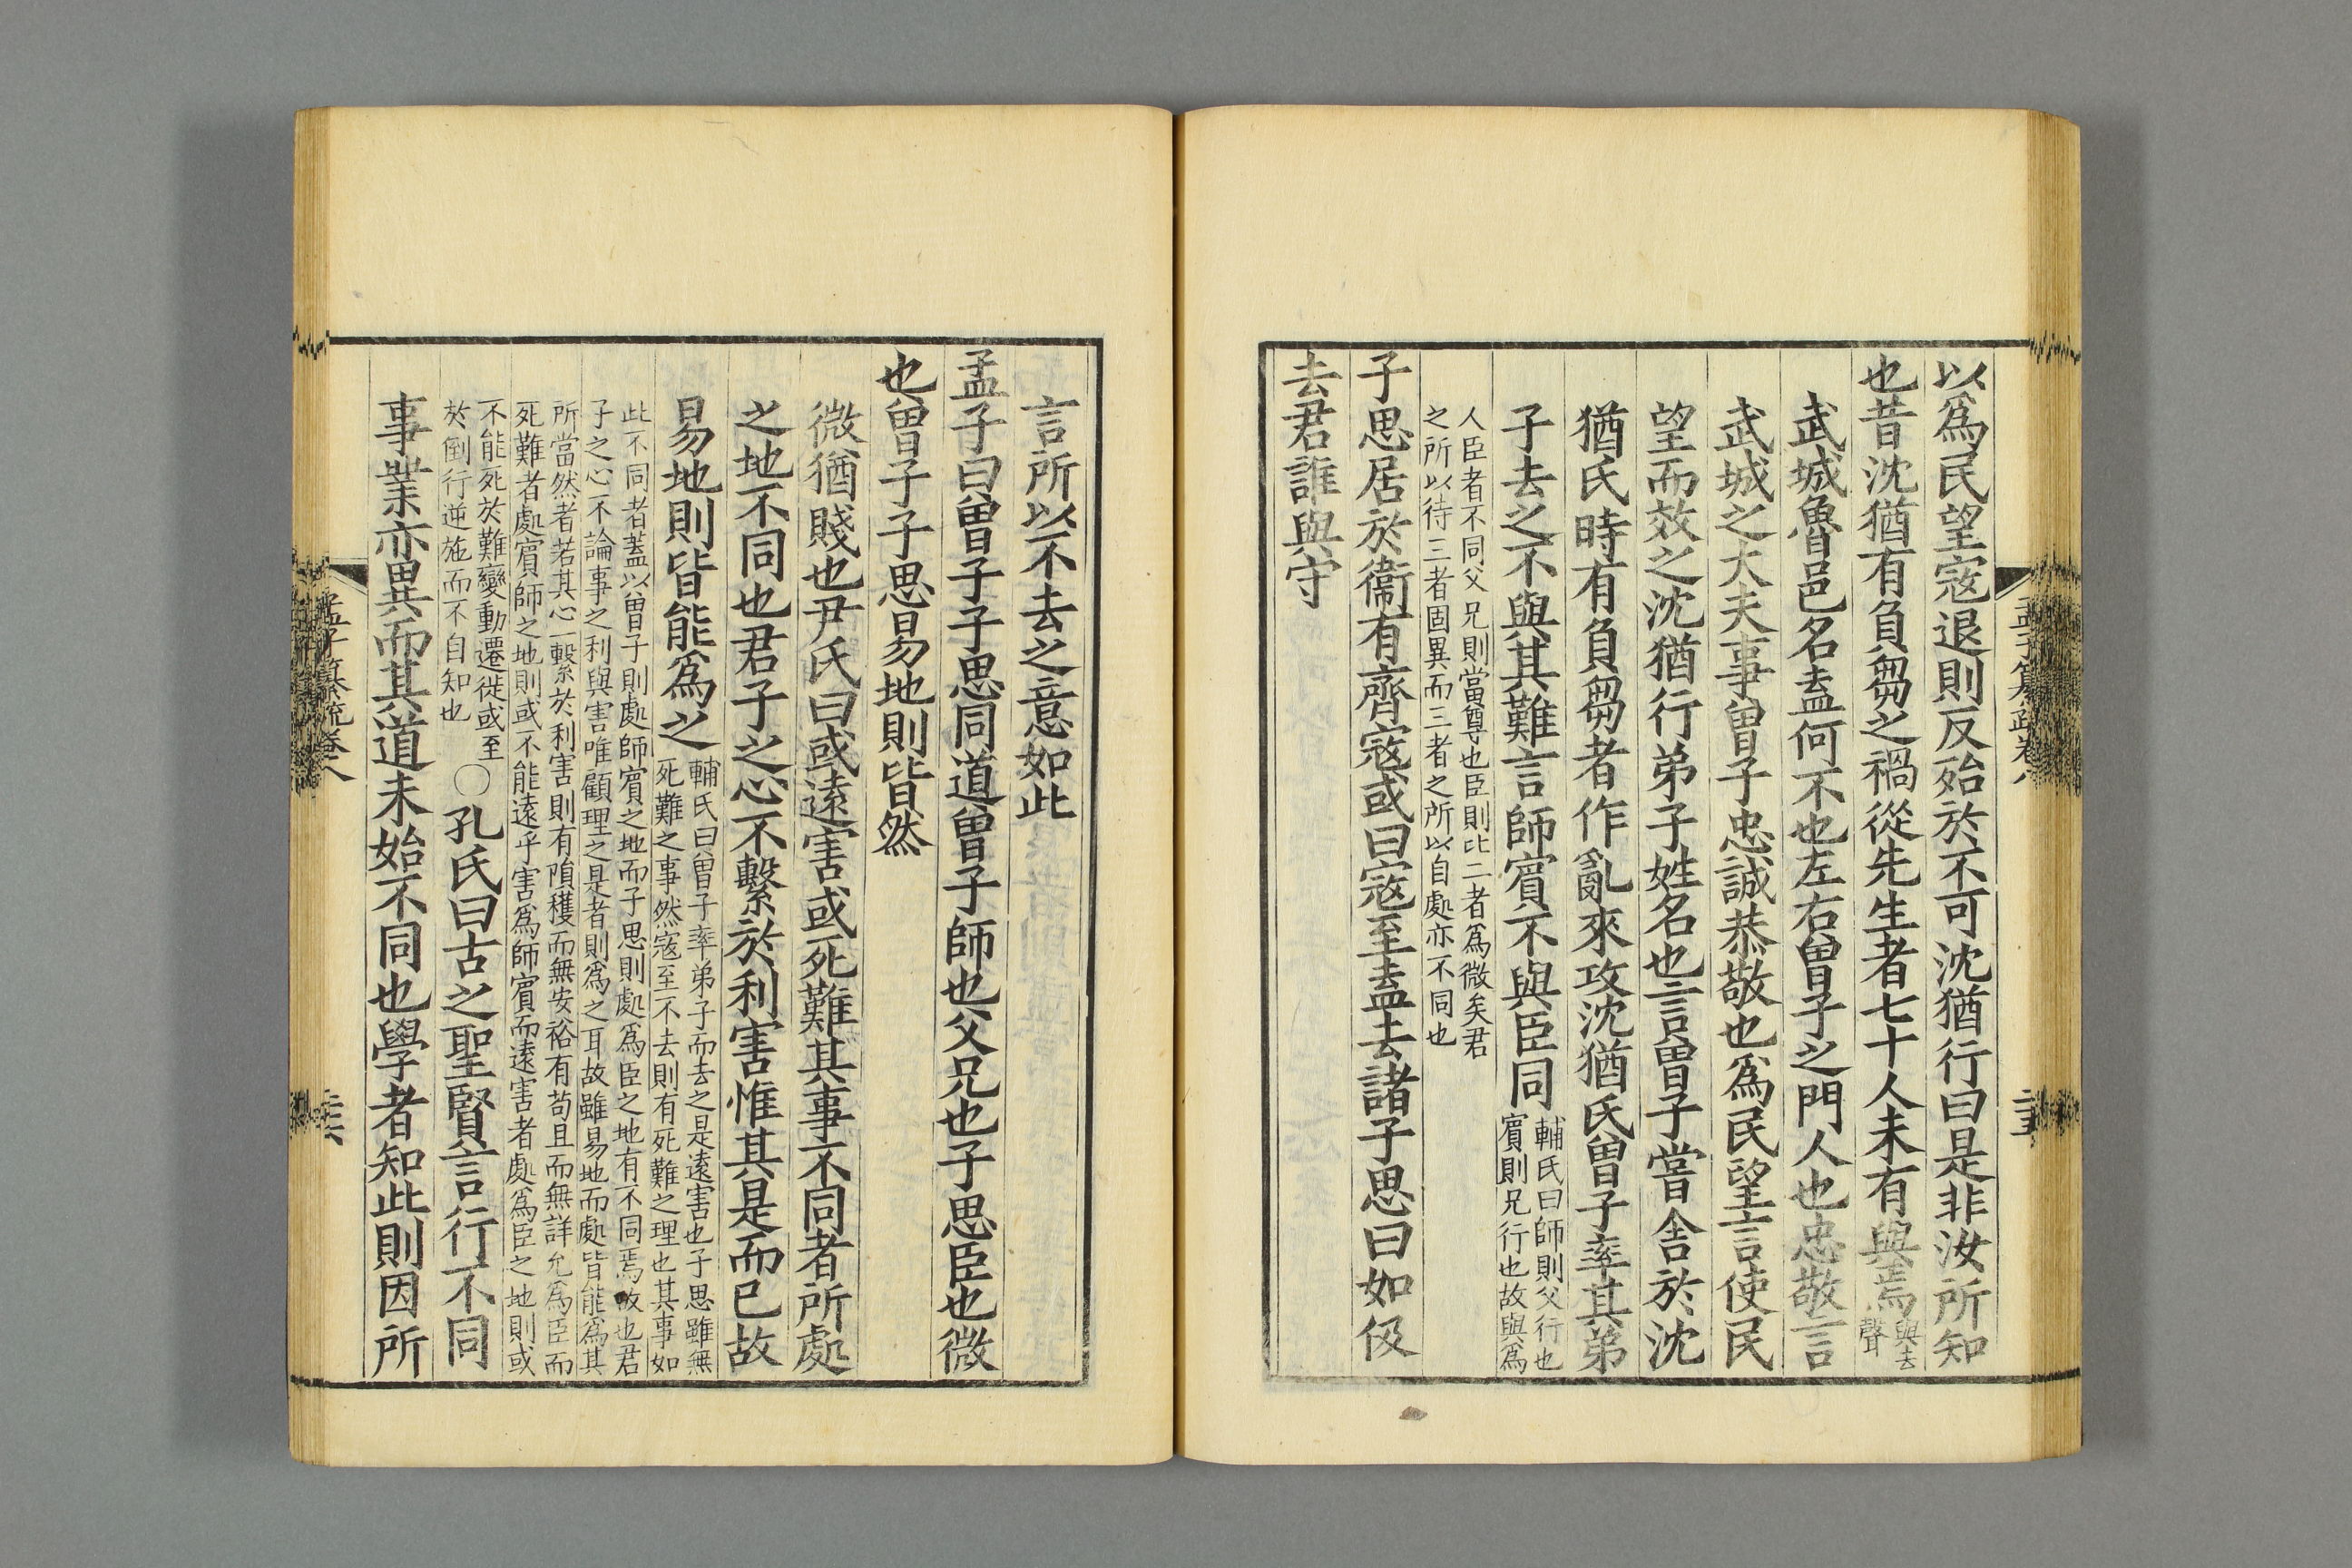 以爲民望寇退則反殆於不可沈猶行曰是非汝所知
也昔沈猶有負芻之禍從先生者七十人未有與焉與去
聲
武城魯邑名盍何不也左右曾子之門人也忠敬言
武城之大夫事曾子忠誠恭敬也爲民望言使民
望而效之沈猶行弟子姓名也言曾子嘗舍於沈
猶氏時有負芻者作亂來攻沈猶氏曾子率其弟
子去之不與其難言師賓不與臣同輔氏曰師則父行也
賓則兄行也故與爲
人臣者不同父兄則當尊也臣則比二者爲微矣君
之所以待三者固異而三者之所以自處亦不同也
子思居於衞有齊寇或曰寇至盍去諸子思曰如伋
去君誰與守
孟子纂疏卷八
言所以不去之意如此
孟子曰曾子子思同道曾子師也父兄也子思臣也微
也曾子子思易地則皆然
微猶賤也尹氏曰或遠害或死難其事不同者所處
之地不同也君子之心不繫於利害惟其是而已故
易地則皆能爲之輔氏曰曾子率弟子而去之是遠害也子思雖無
死難之事然寇至不去則有死難之理也其事如
此不同者蓋以曾子則處師賓之地而子思則處爲臣之地有不同焉故也君
子之心不論事之利與害唯顧理之是者則爲之耳故雖易地而處皆能爲其
所當然者若其心一繫於利害則有隕穫而無安裕有苟且而無詳允爲臣而
死難者處賓師之地則或不能遠乎害爲師賓而遠害者處爲臣之地則或
不能死於難變動遷徙或至
於倒行逆施而不自知也
○孔氏曰古之聖賢言行不同
事業亦異而其道未始不同也學者知此則因所
孟子纂疏卷八